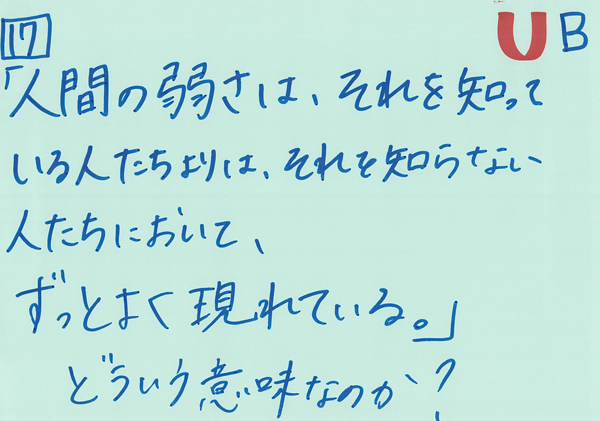 17 UB
「人間の弱さは、それを知って
いる人たちよりは、それを知らない
人たちにおいて、
ずっとよく現れている。」
どういう意味なのか?